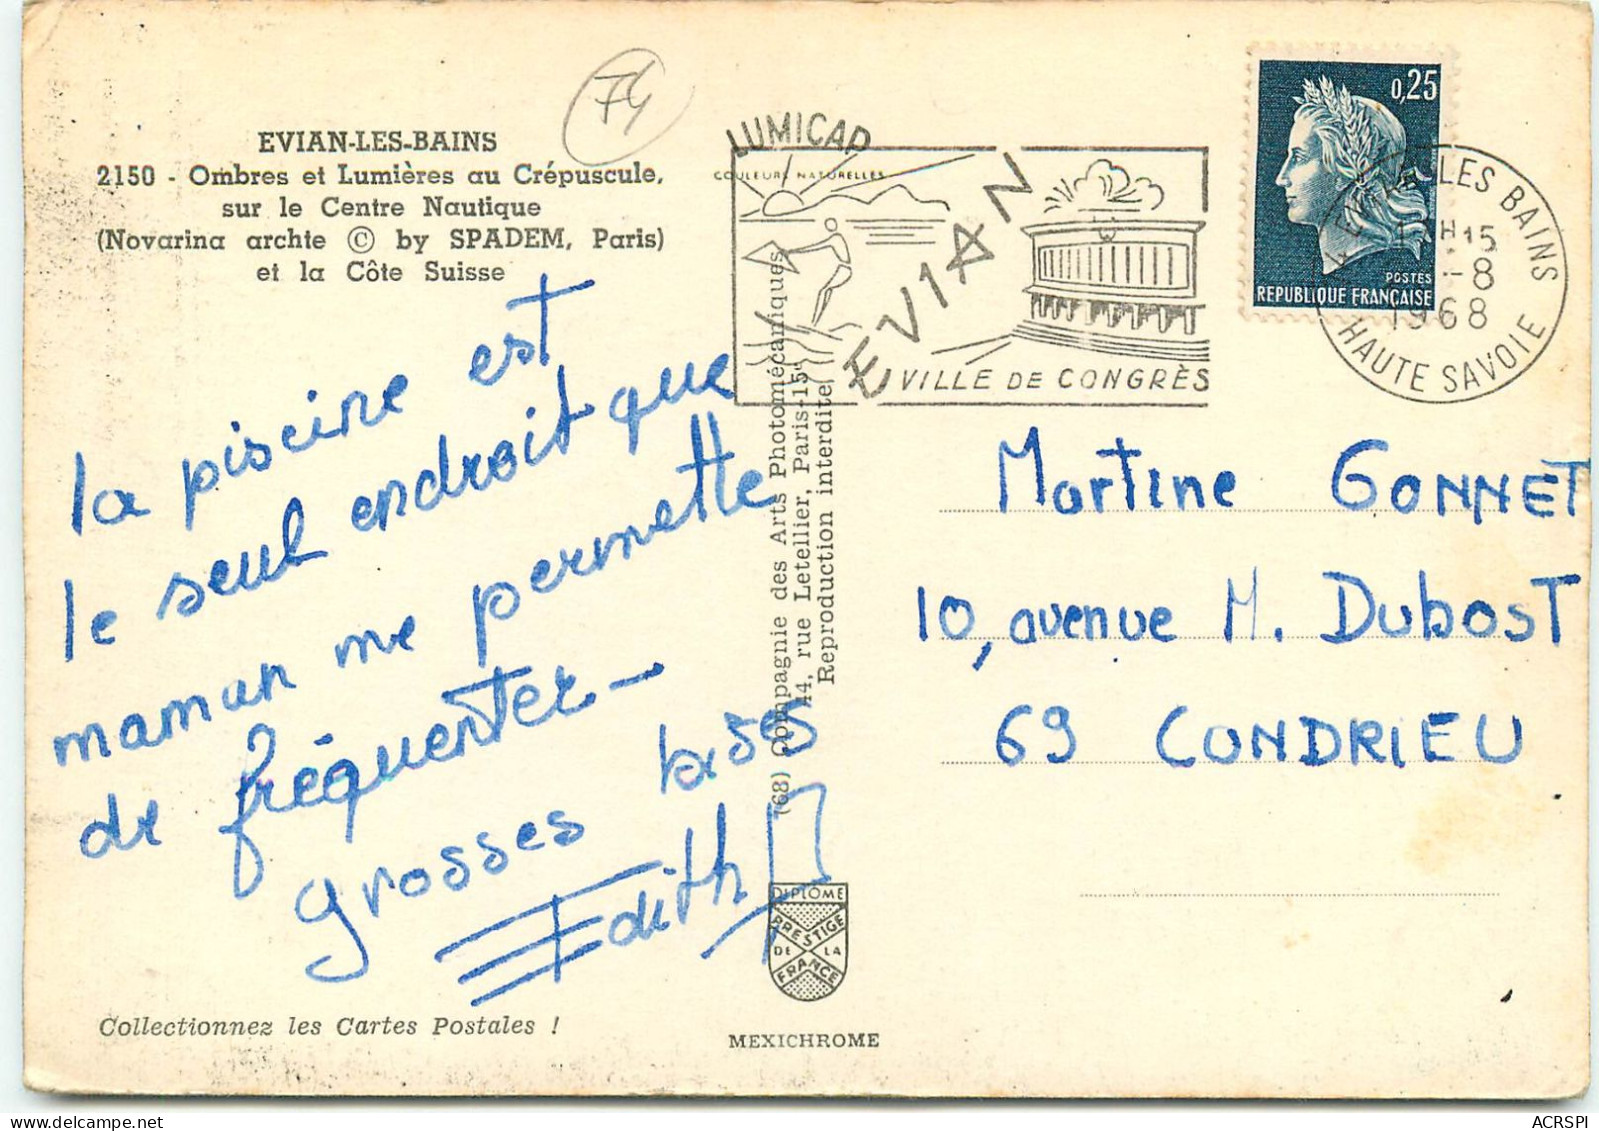 EVIAN-LES-BAINS
2150 - Ombres et Lumières au Crépuscule,
sur le Centre Nautique
(Novarina archte © by SPADEM, Paris)
et la Côte Suisse
74
LUMICAP
COULEURS NATURELLES
EVIAN
VILLE DE CONGRÈS
0,25
POSTES
REPUBLIQUE FRANÇAISE
LES BAINS
H 15
-8
1968
HAUTE SAVOIE
la piscine est
le seul endroit que
maman me permette
de fréquenter -
grosses bises
Edith
(68) Compagnie des Arts Photomécaniques
44, rue Letellier, Paris-15e
Reproduction interdite
Martine GONNET
10, avenue M. DubosT
69 CONDRIEU
DIPLÔME
PRESTIGE
DE LA
FRANCE
Collectionnez les Cartes Postales !
MEXICHROME
ACRSPI